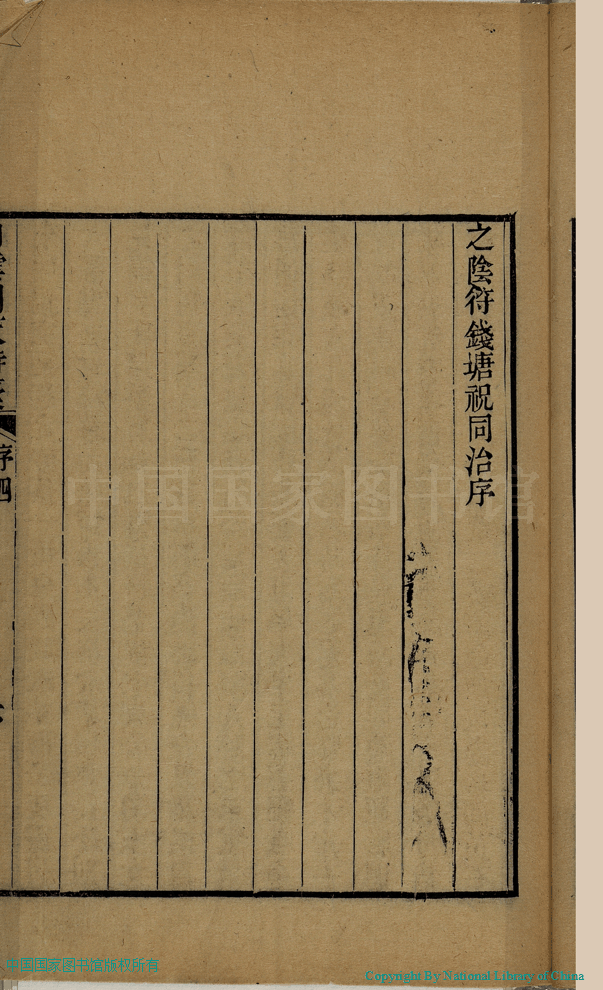 之陰符錢塘祝同治序
序四
中国国家图书馆
中国国家图书馆版权所有
Copyright By National Library of China